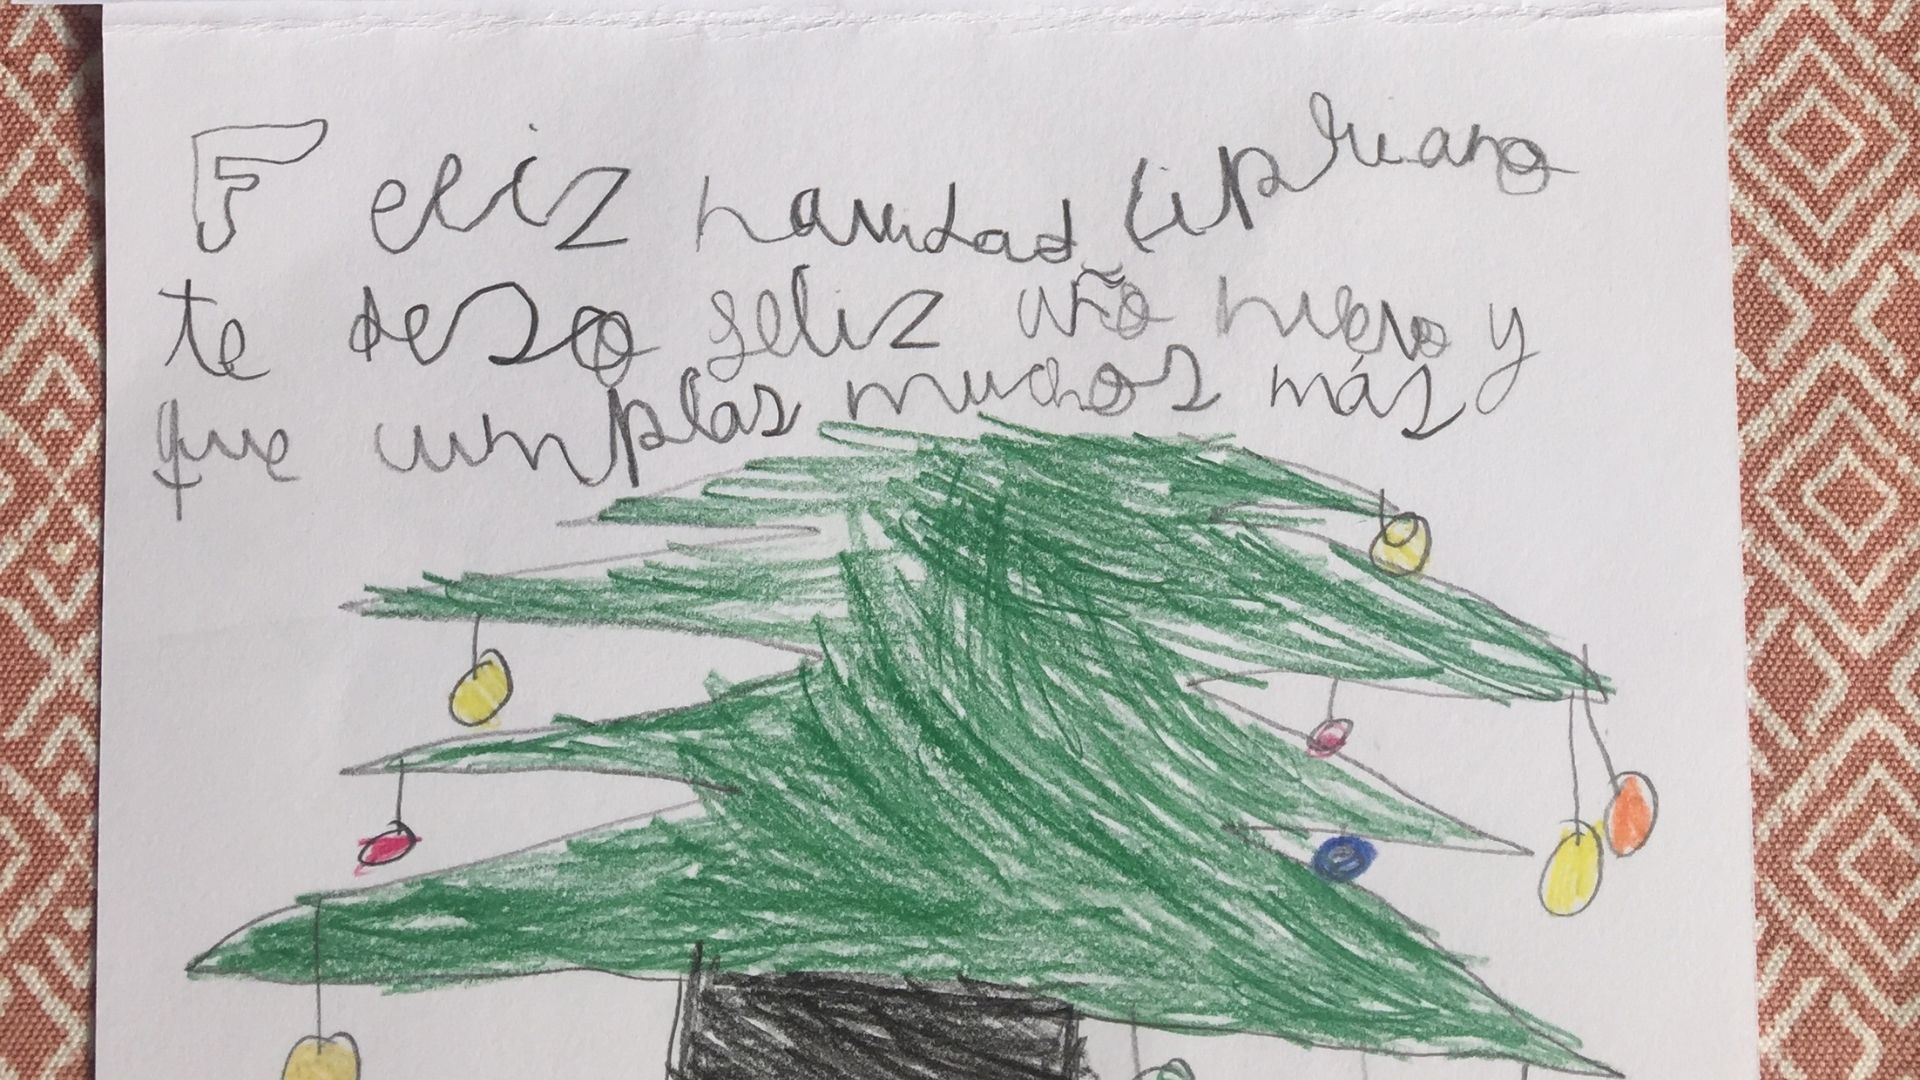 Feliz navidad Cipriano
te deso feliz año nuevo y
que cumplas muchos más